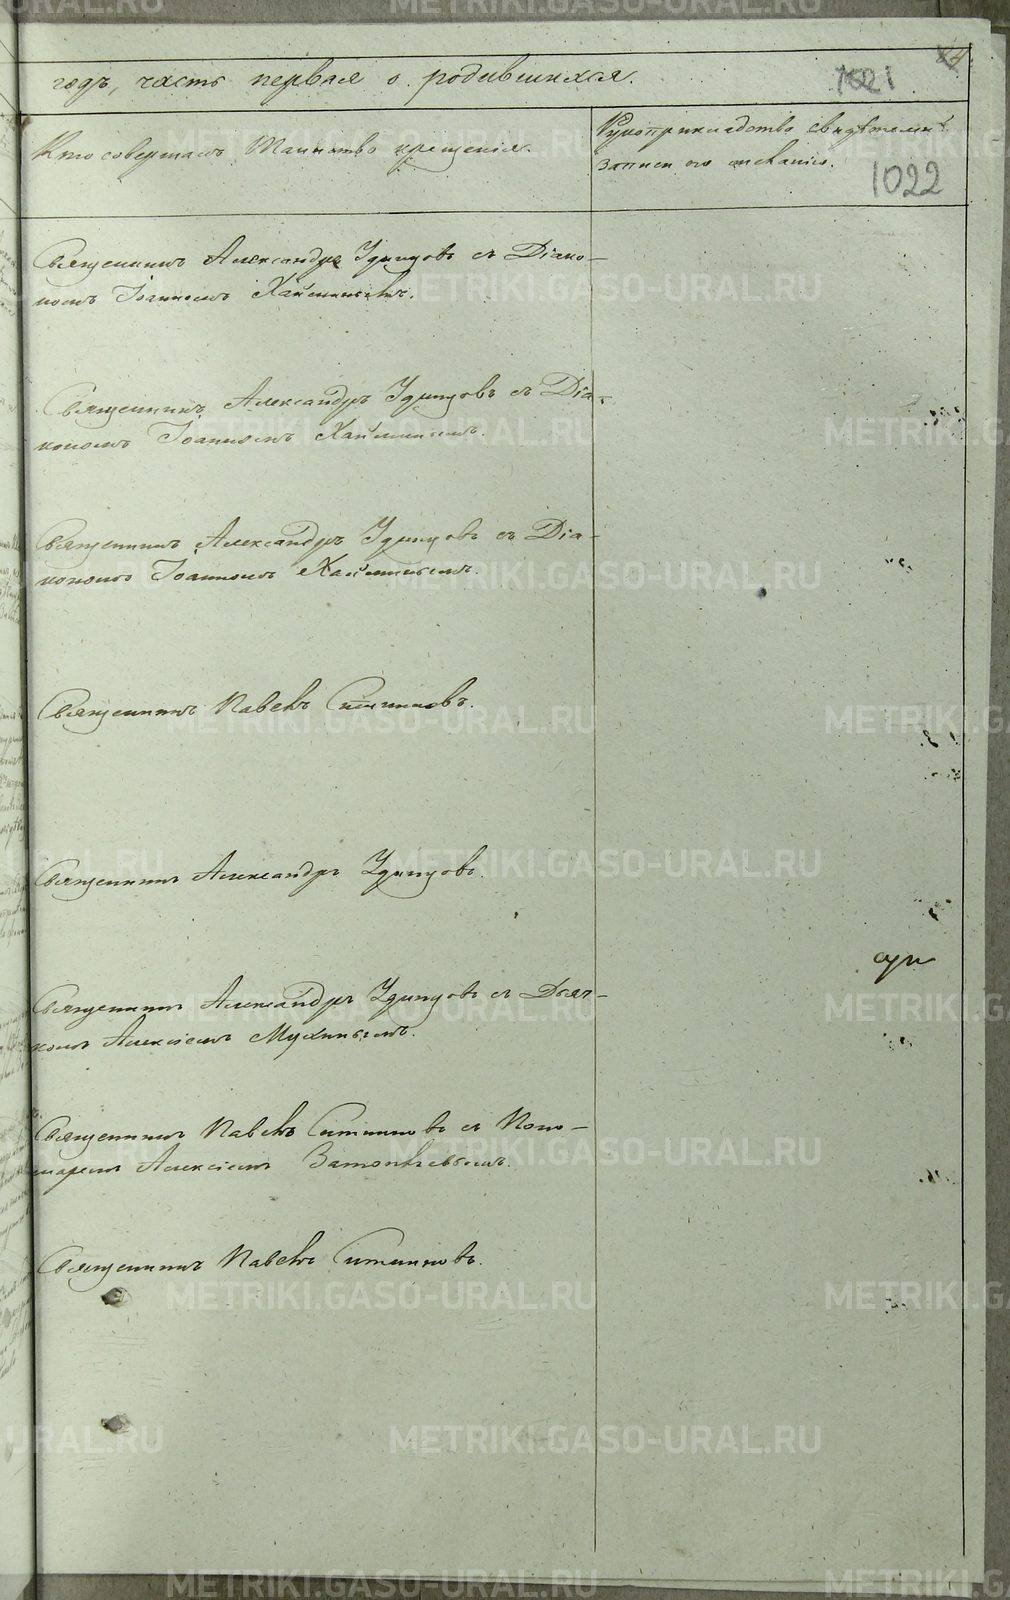 годъ, часть первая о родившихся.
1021
1022
Кто совершалъ Таинство крещенія.
Рукоприкладство свидѣтелей
записи по желанію.
Священникъ Александръ Удинцовъ съ Діако-
номъ Іоанномъ
Священникъ Александръ Удинцовъ съ Діа-
кономъ Іоанномъ
Священникъ Александръ Удинцовъ съ Діа-
кономъ Іоанномъ
Священникъ Павелъ Ситниковъ.
Священникъ Александръ Удинцовъ.
Священникъ Александръ Удинцовъ съ Дьяч-
комъ Алексіемъ Мухинымъ.
Священникъ Павелъ Ситниковъ съ Поно-
маремъ Алексіемъ
Священникъ Павелъ Ситниковъ.
METRIKI.GASO-URAL.RU